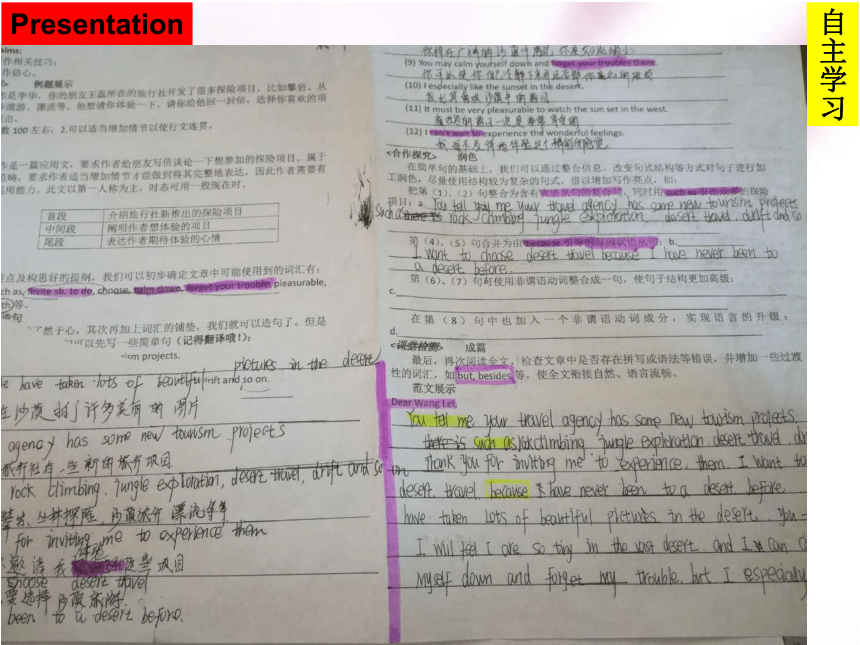 Presentation
自主学习
作相关技巧;
作信心。
例题展示
你是李华,你的朋友王磊所在的旅行社开发了很多探险项目,比如攀岩、丛
漂流等。他想请你体验一下。请你给他回一封信,选择你喜欢的项
数100左右; 2.可以适当增加情节以使行文连贯。
作是一篇应用文,要求作者给朋友写信谈论一下想参加的探险项目,属于
范畴,要求作者适当增加情节才能做到将其完整地表达,因此作者需要有
运用能力。此文以第一人称为主,时态可用一般现在时。
首段 介绍旅行社新推出的探险项目
中间段 阐明作者想体验的项目
尾段 表达作者期待体验的心情
点及构思好的提纲,我们可以初步确定文章中可能使用到的词汇有:
ch as, invite sb. to do, choose, calm down, forget your trouble, pleasurable,
th)等。
了然于心,其次再加上词汇的铺垫,我们就可以造句了。但是
可以先写一些简单句(记得翻译哦!):
ism projects.
have taken lots of beautiful pictures in the desert
rift and so on.
在沙漠拍了许多美丽的图片
agency has some new tourism projects
旅行社有一些新的旅行项目
rock climbing, jungle exploration, desert travel, drift and so on
攀岩、丛林探险、沙漠旅行 漂流等等
for inviting me to experience them
邀请我体验这些项目
choose desert travel
要选择沙漠旅游
been to a desert before.
(9) You may calm yourself down and forget your troubles there.
(10) I especially like the sunset in the desert.
我尤其喜欢沙漠中的落日
(11) It must be very pleasurable to watch the sun set in the west.
(12) I can't wait to experience the wonderful feelings.
<合作探究> 润色
在简单句的基础上,我们可以通过整合信息、改变句式结构等方式对句子进行加
工润色,尽量使用结构较为复杂的句式,借以增加写作亮点,如:
把第(1)、(2)句整合为含有宾语从句的复合句,同时用 such as 引出众多的探险
项目: a. You tell me your travel agency has some new tourism projects
such as rock climbing jungle exploration, desert travel, drift and so
第(4)、(5)句合并为由 because 引导的原因状语从句: b.
I want to choose desert travel because I have never been to
a desert before.
第(6)、(7)句可使用非谓语动词整合成一句,使句子结构更加高级:
c.
在第(8)句中也加入一个非谓语动词成分,实现语言的升级:
d.
<课堂检测> 成篇
最后,再次阅读全文,检查文章中是否存在拼写或语法等错误,并增加一些过渡
性的词汇,如 but, besides 等,使全文衔接自然、语言流畅。
范文展示
Dear Wang Lei,
You tell me your travel agency has some new tourism projects.
such as rock climbing, jungle exploration desert travel, dr
thank you for inviting me to experience. them. I want to
desert travel because I have never been to a desert before.
have taken lots of beautiful pictures in the desert. You
I will feel I are so tiny in the vast desert. and I can c
myself down and forget my trouble. but I especially